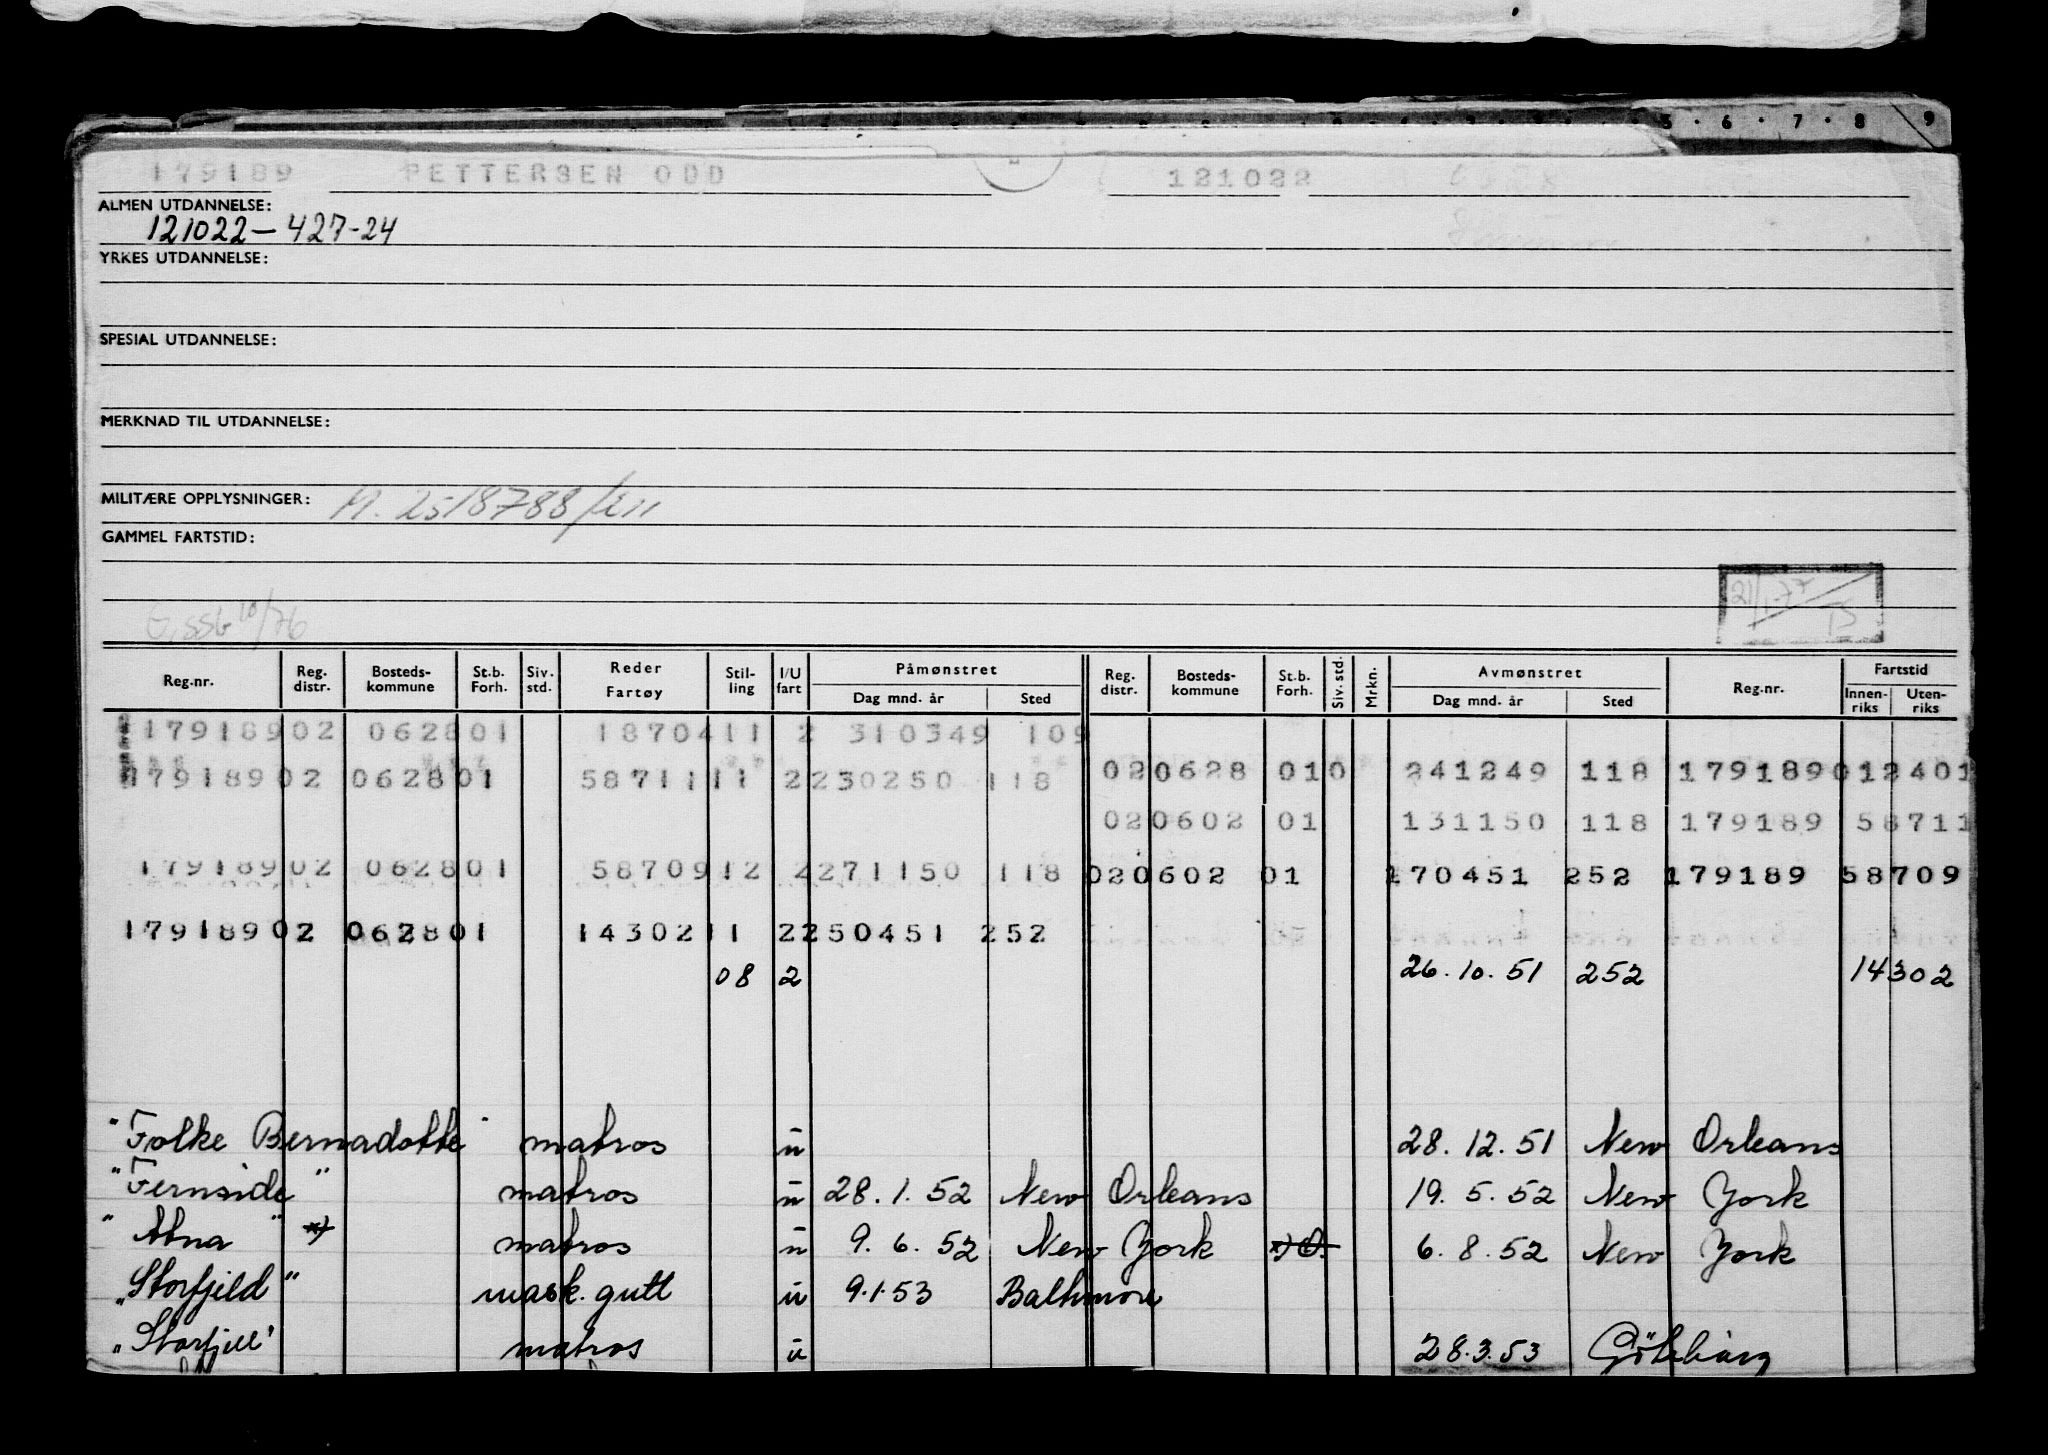 5 · 6 · 7 · 8 9
179189 PETTERSEN ODD 121022
ALMEN UTDANNELSE:
121022 — 427-24
YRKES UTDANNELSE:
SPESIAL UTDANNELSE:
MERKNAD TIL UTDANNELSE:
MILITÆRE OPPLYSNINGER: M. 2518788/
GAMMEL FARTSTID:
21/1-77
10/76
Reg.nr. Reg. distr. Bosteds-kommune St.b. Forh. Siv. std. Reder Fartøy Stil-ling I/U fart Påmønstret Dag mnd. år Sted Reg. distr. Bosteds-kommune St.b. Forh. Siv. std. Mrkn. Avmønstret Dag mnd. år Sted Reg.nr. Fartstid Innen-riks Uten-riks
179189 02 0628 01 18704 11 2 310349 109
020628 010 241249 118 179189 012401
179189 02 0628 01 58711 11 2 230250 118
020602 01 131150 118 179189 58711
179189 02 0628 01 58709 12 2 271150 118 020602 01 170451 252 179189 58709
179189 02 0628 01 14302 11 2 250451 252
08 2 26.10.51 252 14302
"Folke Bernadotte" matros u 28.12.51 New Orleans
"Fernside" matros u 28.1.52 New Orleans 19.5.52 New York
"Abna" x) matros u 9.6.52 New York x) O. 6.8.52 New York
"Storfjeld" mask. gutt u 9.1.53 Baltimore
"Storfjell" matros u 28.3.53 Göteborg